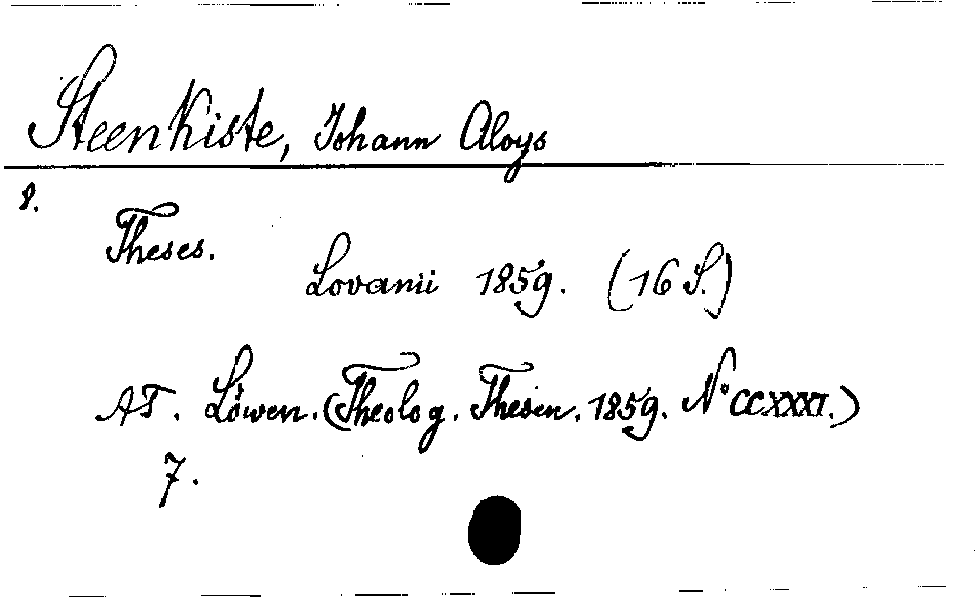 Steenkiste, Johann Aloys
8.
Theses.
Lovanii 1859. (16 S.)
AT. Löwen. (Theolog. Thesen. 1859. No CCXXXI.)
7.